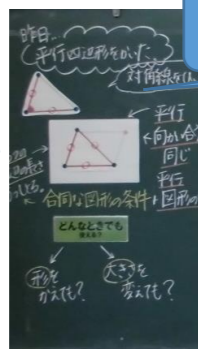 昨日…
平行四辺形をかいた
対角線をひく
平行
向かい合
同じ
平行
図形の
の長さ
合同な図形の条件
どんなときでも
使える?
形を
かえても?
大きさを
変えても?